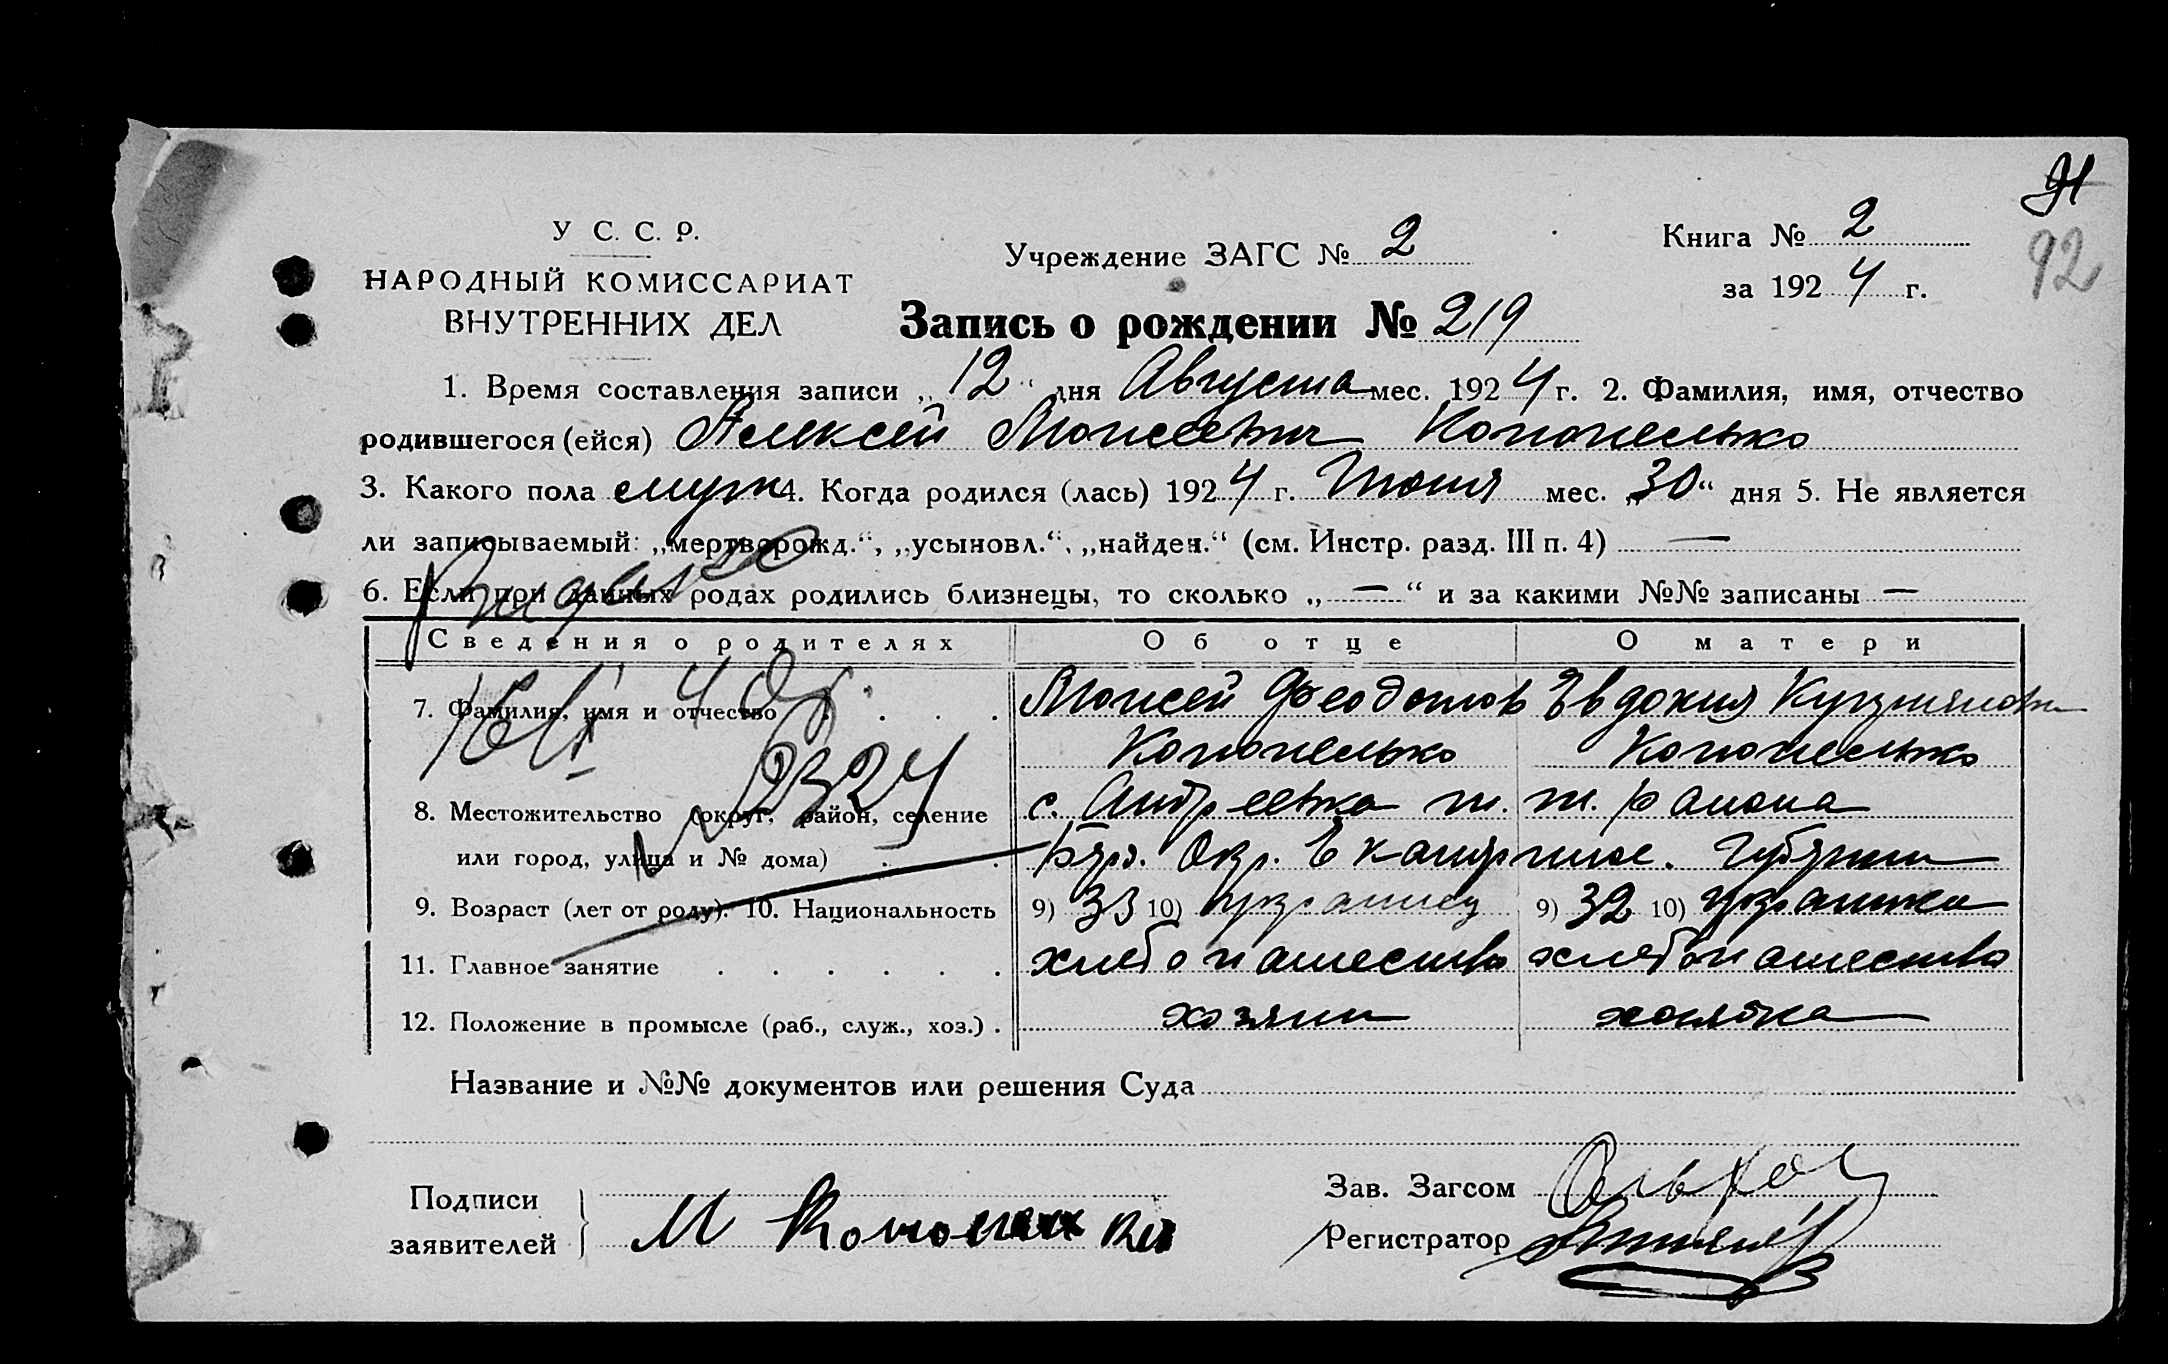 91
92
У С. С. Р.
НАРОДНЫЙ КОМИССАРИАТ
ВНУТРЕННИХ ДЕЛ
Учреждение ЗАГС № 2
Книга № 2
за 1924 г.
Запись о рождении № 219
1. Время составления записи „12“ дня Августа мес. 1924 г. 2. Фамилия, имя, отчество
родившегося (ейся) Алексей Моисеевич Кононенько
3. Какого пола муж 4. Когда родился (лась) 1924 г. Июня мес. „30“ дня 5. Не является
ли записываемый: „мертворожд.“, „усыновл.“, „найден.“ (см. Инстр. разд. III п. 4) —
6. Если при данных родах родились близнецы, то сколько „—“ и за какими №№ записаны —
Сведения о родителях Об отце О матери
7. Фамилия, имя и отчество . . . Моисей Феодотов Евдокия Кузьминовн
Кононенько Кононенько
2324
8. Местожительство (округ, район, селение с. Андреевка т. т. района
или город, улица и № дома) . . Бердя. Окр. Екатерин. Губернии
9. Возраст (лет от роду). 10. Национальность 9) 33 10) украинец 9) 32 10) украинка
11. Главное занятие . . . . . . хлебопашество хлебопашество
12. Положение в промысле (раб., служ., хоз.) . хозяин хозяйка
Название и №№ документов или решения Суда
Подписи
заявителей } М
Зав. Загсом
Регистратор